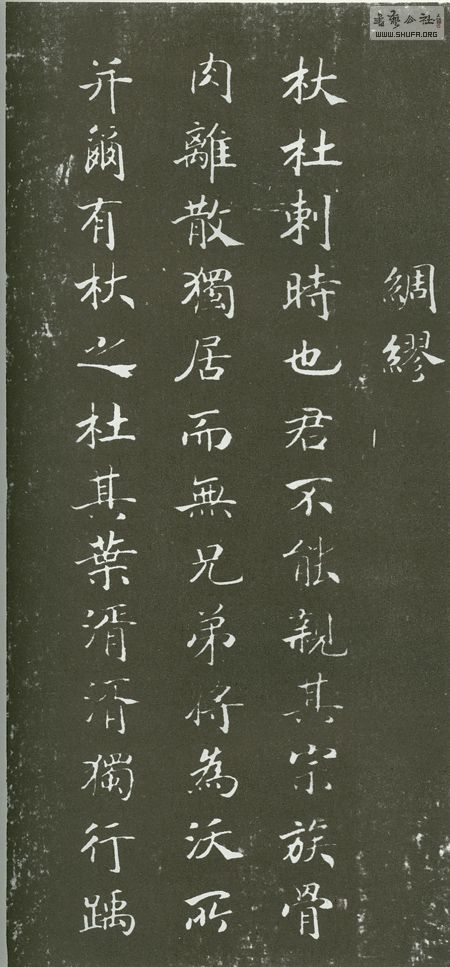 書藝公社
WWW.SHUFA.ORG
綢繆
杕杜刺時也君不能親其宗族骨
肉離散獨居而無兄弟將為沃所
并爾有杕之杜其葉湑湑獨行踽